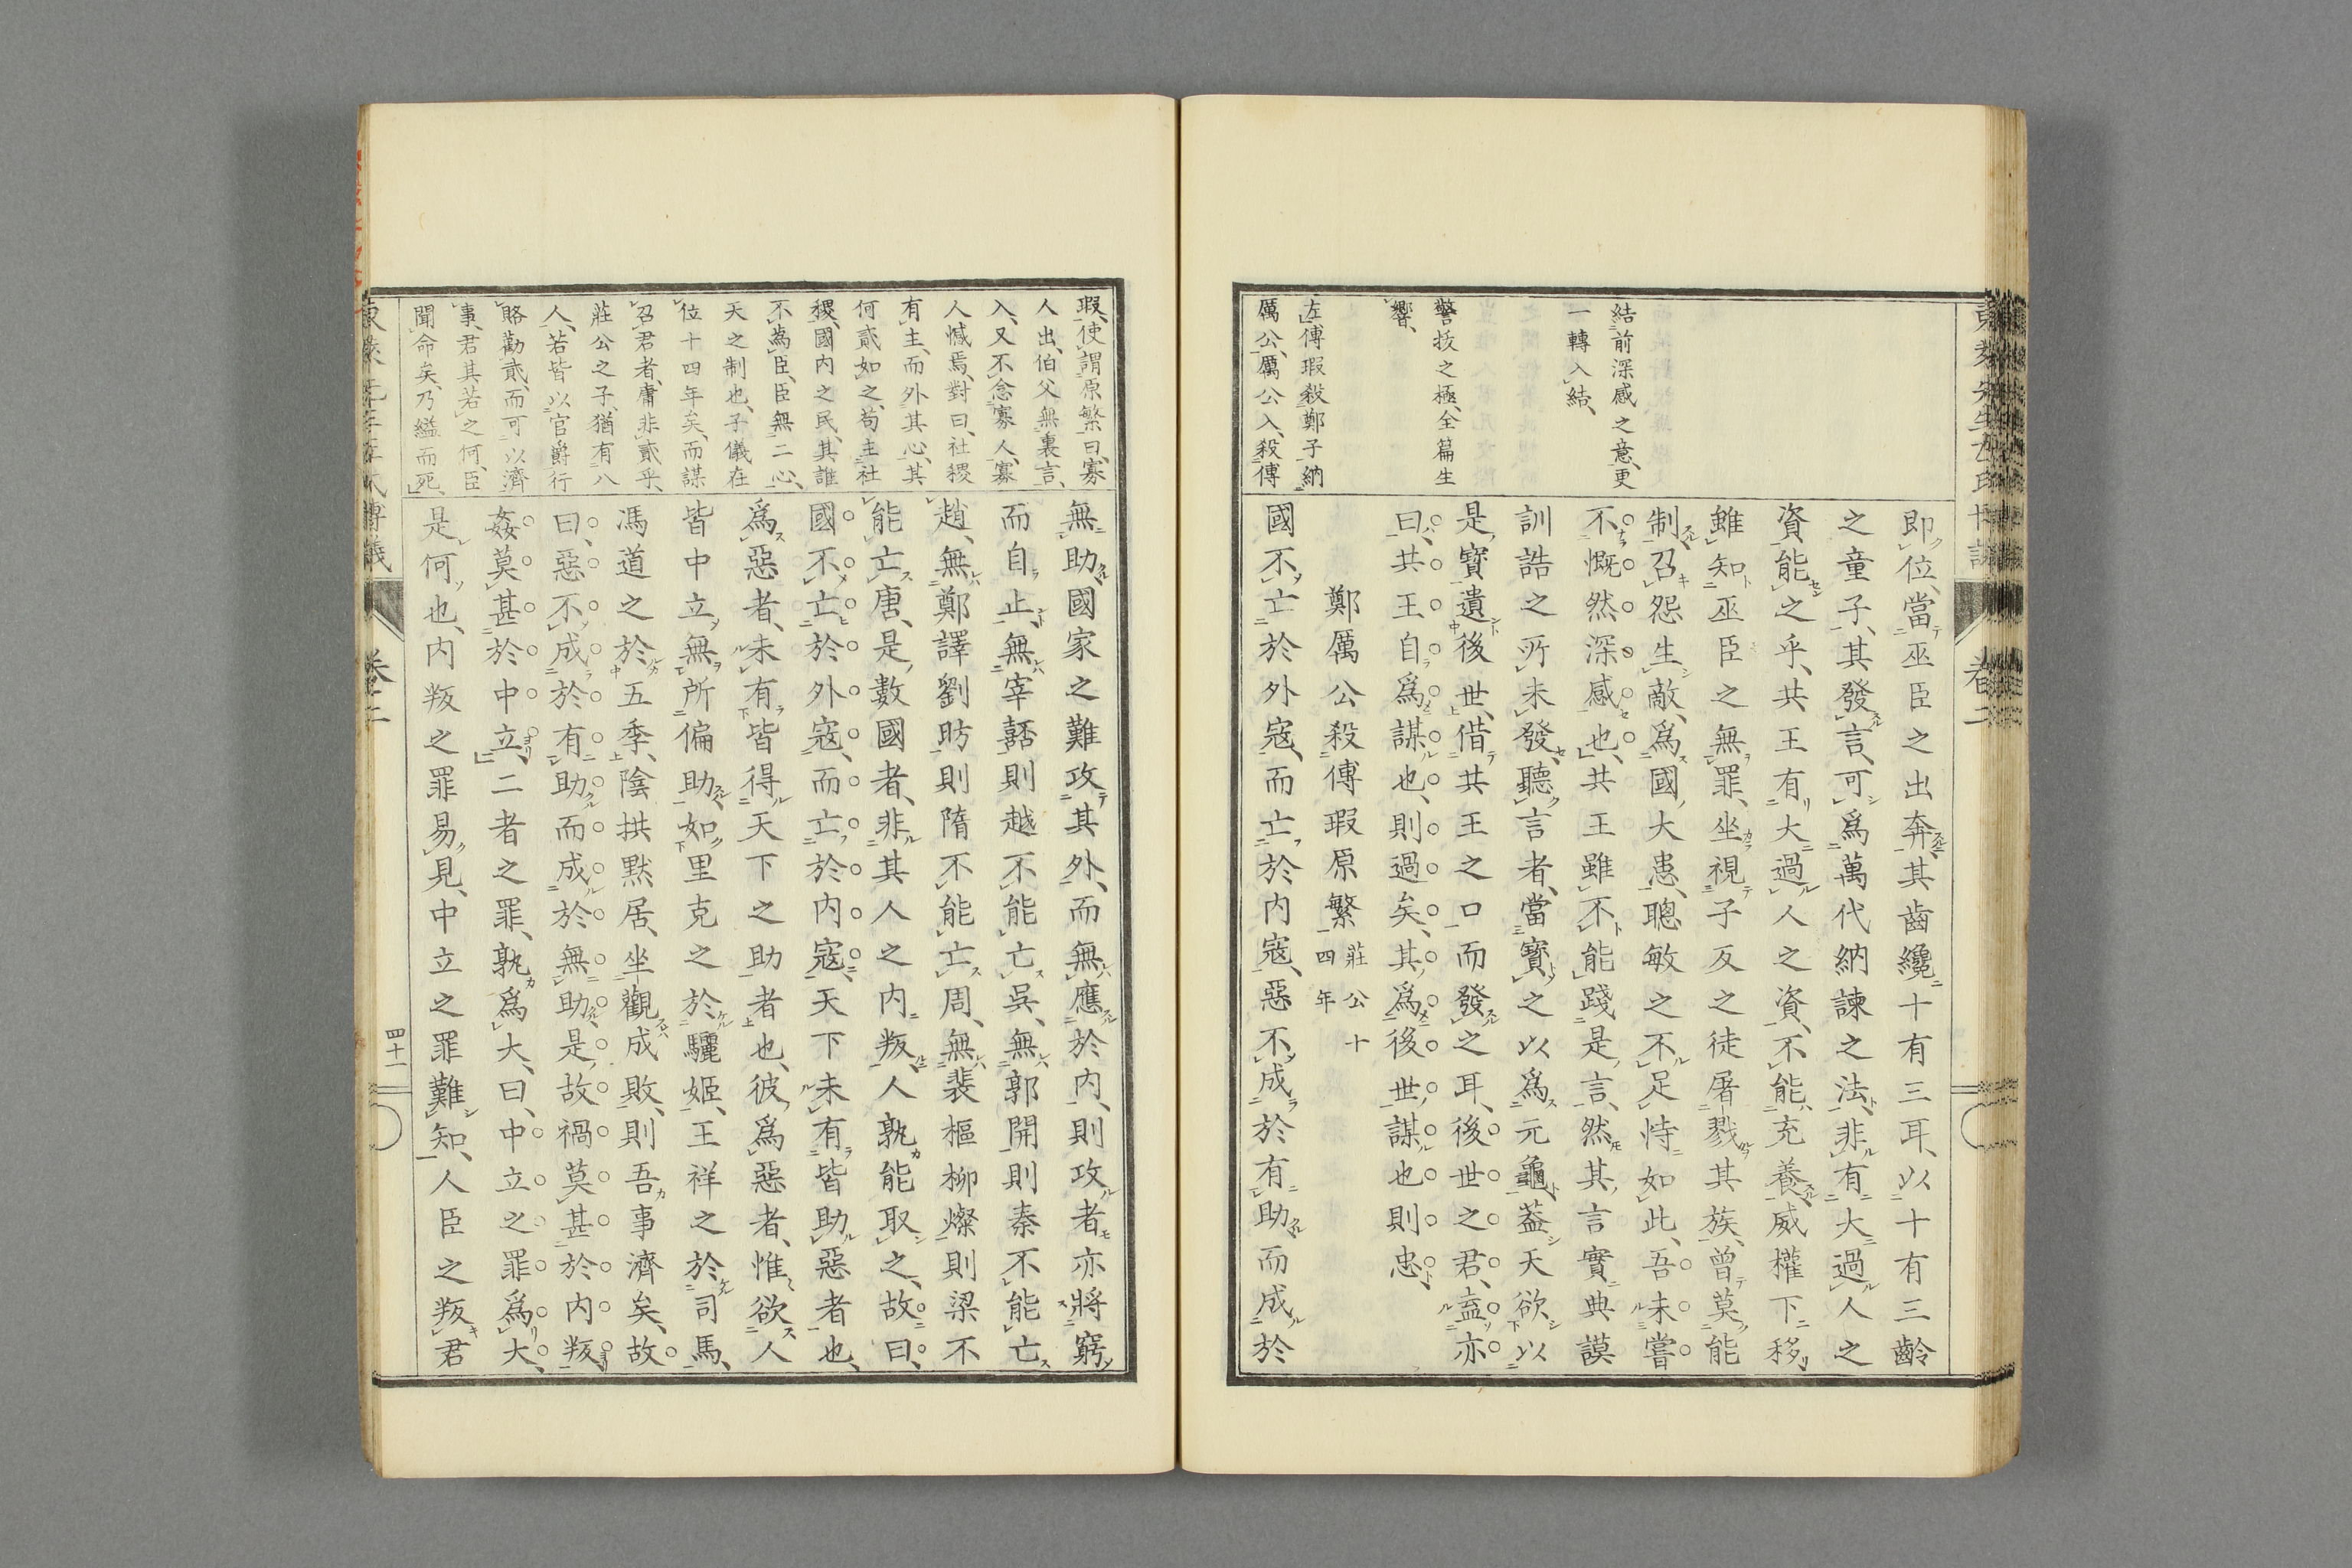 結前深感之意、更
一轉入結、
警拔之極、全篇生
響、
左傳瑕殺鄭子納
厲公、厲公入、殺傅
即位、當巫臣之出奔、其齒纔十有三耳、以十有三齡
之童子、其發言、可爲萬代納諫之法、非有大過人之
資能之乎、共王有大過人之資、不能充養、威權下移、
雖知巫臣之無罪、坐視子反之徒屠戮其族、曾莫能
制、召怨生敵、爲國大患、聰敏之不足恃如此、吾未嘗
不慨然深感也、共王雖不能踐是言、然其言實典謨
訓誥之所未發、聽言者、當寶之以爲元龜、蓋天欲以
是寶遺後世、借共王之口而發之耳、後世之君、盍亦
曰、共王自爲謀也、則過矣、其爲後世謀也則忠、
鄭厲公殺傅瑕原繁 莊公十四年
國不亡於外寇、而亡於内寇、惡不成於有助而成於
瑕、使謂原繁曰、寡
人出、伯父無裏言、
入、又不念寡人、寡
人憾焉、對曰、社稷
有主、而外其心、其
何貳如之、苟主社
稷、國内之民、其誰
不爲臣、臣無二心、
天之制也、子儀在
位十四年矣、而謀
召君者、庸非貳乎、
莊公之子、猶有八
人、若皆以官爵行
賂勸貳、而可以濟
事、君其若之何、臣
聞命矣、乃縊而死、
無助、國家之難攻其外、而無應於内、則攻者亦將窮
而自止、無宰嚭則越不能亡吳、無郭開則秦不能亡
趙、無鄭譯劉昉則隋不能亡周、無裴樞柳燦則梁不
能亡唐、是數國者、非其人之内叛、人孰能取之、故曰、
國不亡於外寇、而亡於内寇、天下未有皆助惡者也、
爲惡者、未有皆得天下之助者也、彼爲惡者、惟欲人
皆中立無所偏助、如里克之於驪姬、王祥之於司馬、
馮道之於五季、陰拱默居、坐觀成敗、則吾事濟矣、故
曰、惡不成於有助而成於無助、是故禍莫甚於内叛、
姦莫甚於中立、二者之罪、孰爲大、曰、中立之罪爲大、
是何也、内叛之罪易見、中立之罪難知、人臣之叛君
卷二
四十一